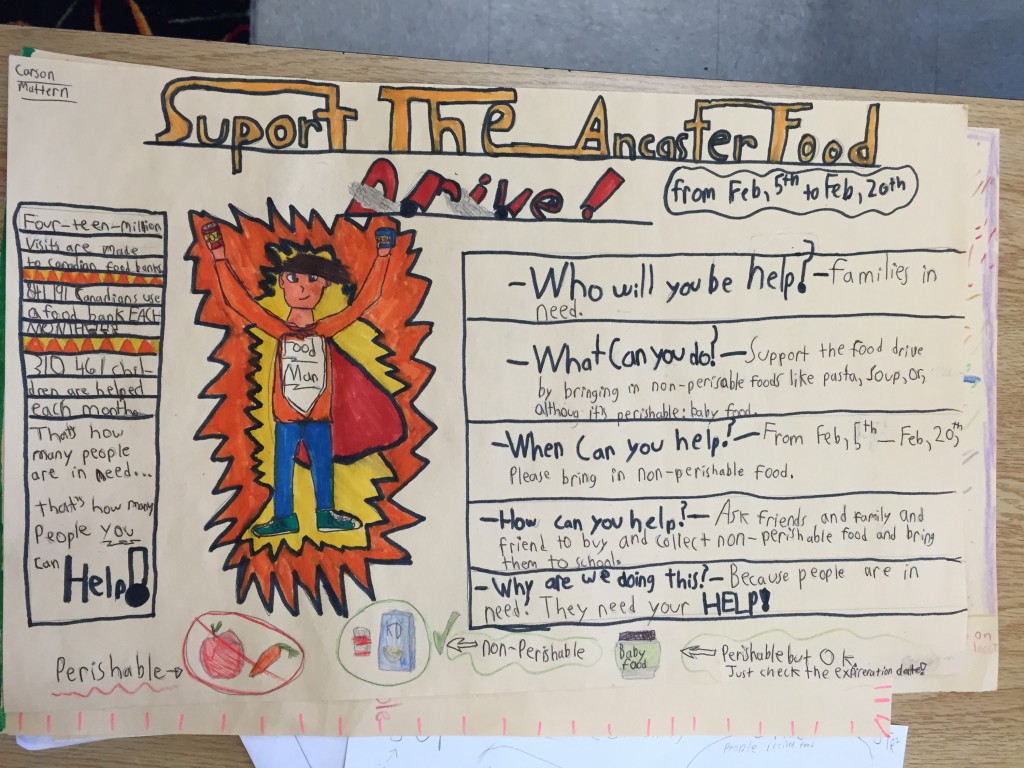 Carson
Mattern
Suport The Ancaster Food
Drive!
from Feb, 5th to Feb, 20th
Four-teen-million
visits are made
to canadian food banks
841 191 Canadians use
a food bank EACH
MONTH
310 461 chil-
dren are helped
each month.
That's how
many people
are in need...
that's how many
People you
can
Help!
Food
Man
-Who will you be help?-families in
need.
-What Can you do?-Support the food drive
by bringing in non-perisable foods like pasta, soup, or,
althoug it's perishable: baby food.
-When Can you help?-From Feb, 5th-Feb, 20th
Please bring in non-perishable food.
-How can you help?-Ask friends and family and
friend to buy and collect non-perishable food and bring
them to school.
-Why are we doing this?-Because people are in
need! They need your HELP!
Perishable
KD
non-Perishable
Baby
food
Perishable but O K.
Just check the expireration date!
on